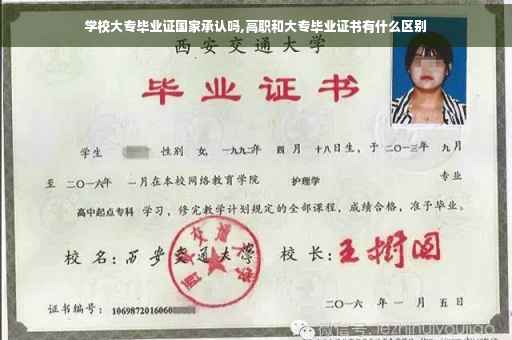 学校大专毕业证国家承认吗,高职和大专毕业证书有什么区别
西安交通大学
毕业证书
学生 性别 女, 一九九二年 四月 十八日生, 于二〇一三年 九月
至 二〇一六年 一月在本校网络教育学院 护理学 专业
高中起点专科 学习, 修完教学计划规定的全部课程, 成绩合格, 准予毕业。
校 名: 西安交通大学 校 长: 王树国
西安交通大学
证书编号: 1069872016060
二〇一六 年 一 月 五 日
微信号: jezhihuiyoujiao